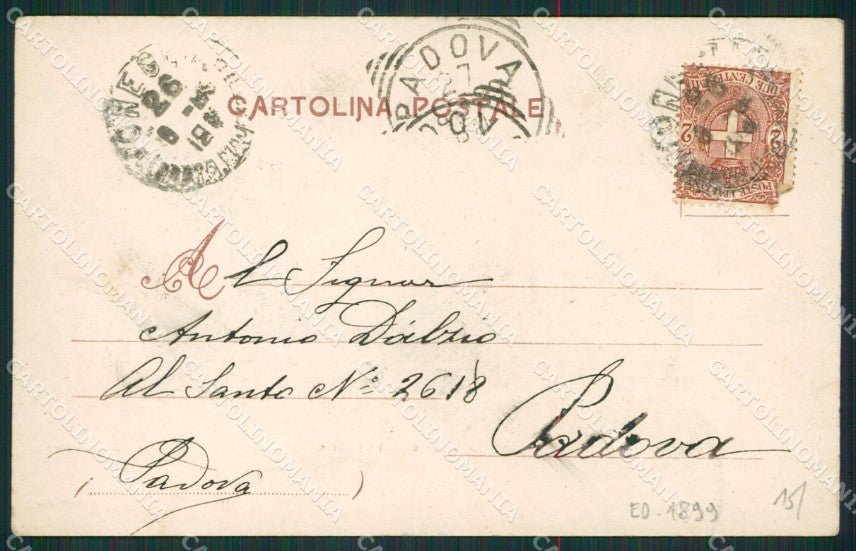 CARTOLINA POSTALE
PADOVA
27
26
DUE CENTESIMI
2 2
POSTE
Al Signor
Antonio Dalzio
Al Santo Nº 2618
Padova
(Padova)
ED-1899
15/
CARTOLINOMANIA